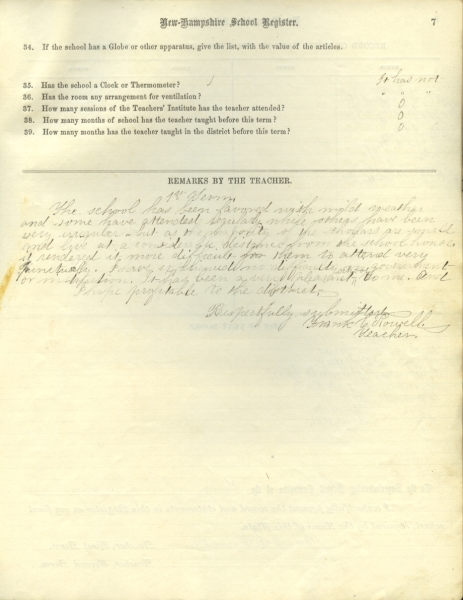 New-Hampshire School Register. 7
34. If the school has a Globe or other apparatus, give the list, with the value of the articles.
35. Has the school a Clock or Thermometer? It has not
36. Has the room any arrangement for ventilation? " " "
37. How many sessions of the Teachers' Institute has the teacher attended? 0
38. How many months of school has the teacher taught before this term? 0
39. How many months has the teacher taught in the district before this term? 0
REMARKS BY THE TEACHER.
1st Term
The school has been favored with mild weather
and some have attended regularly while others have been
very irregular but as the majority of the scholars are small
and live at a considerable distance from the school house
it rendered it more difficult for them to attend very
punctually. I have
or It has been a very pleasant to me. And
I hope profitable to the district.
Respectfully submitted
Frank C. Rowell
Teacher